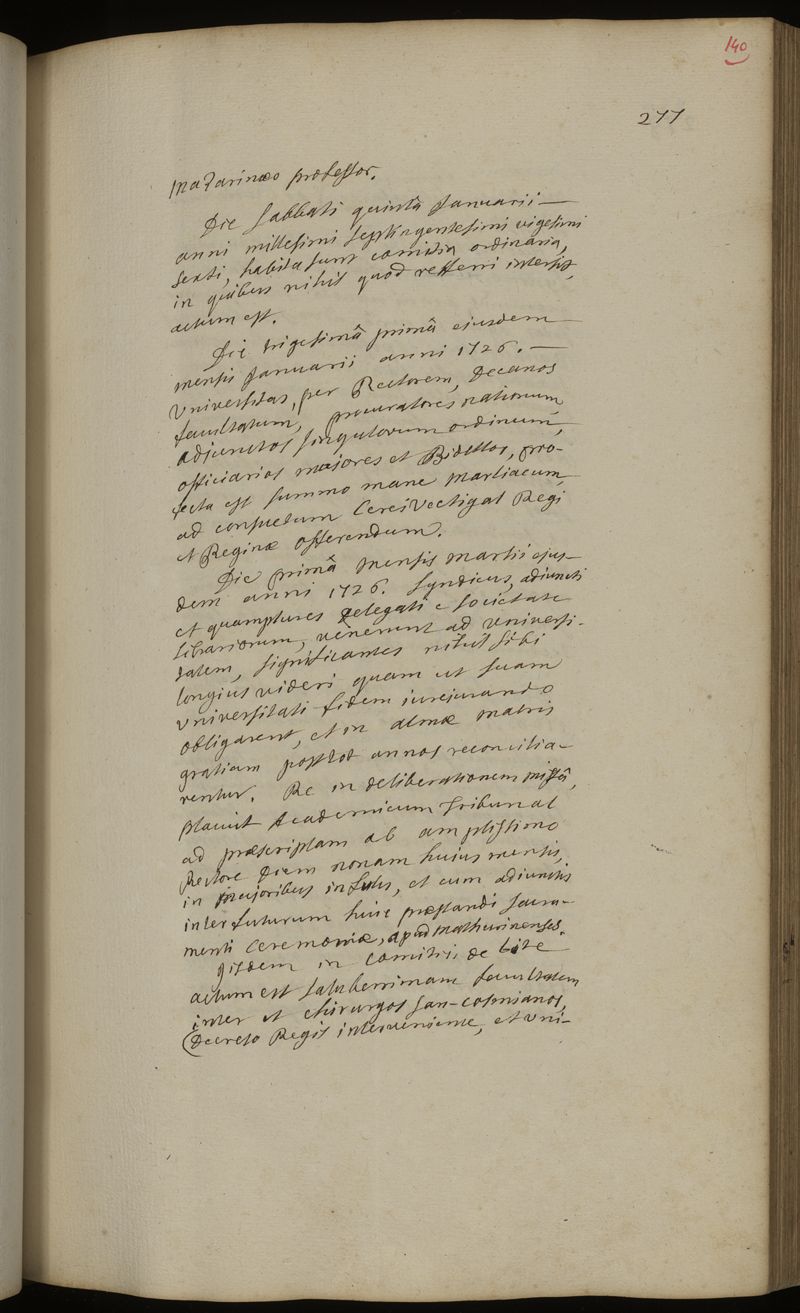 140
277
mazarinæo professor.
Die sabbati quintâ Januarii
anni millesimi septingentesimi vigesimi
sexti, habita sunt comitia ordinaria,
in quibus nihil quod referri intersit,
actum est.
Die trigesimâ primâ ejusdem
mensis Januarii anni 1726.
Universitas, per Rectorem, Decanos
facultatum, procuratores nationum
adjunctos singulorum ordinum,
officiarios majores et Bidellos, pro-
fecta est summo mane Marliacum,
ad consuetum Cerei Vectigal Regi
et Reginæ offerendum.
Die primâ mensis martii ejus-
dem anni 1726. Syndicus, adiuncti
et quamplures delegati e societate
librariorum, venerunt ad Universi-
tatem, significantes nihil sibi
longius videri quam ut suam
Universitati fidem jurejurando
obligarent, et in almæ matris
gratiam post tot annos reconcilia-
rentur. Re in deliberationem missâ,
placuit Academicum Tribunal
ad præscriptam ab amplissimo
Rectore diem nonam huius mensis,
in majoribus infulis, et cum adiunctis
interfuturum huic præstandi sacra-
menti ceremoniæ, apud mathurinenses.
Iisdem in Comitiis de Lite
actum est saluberrimam facultatem
inter et chirurgos San-cosmianos,
Decreto Regis interveniente, et Uni-